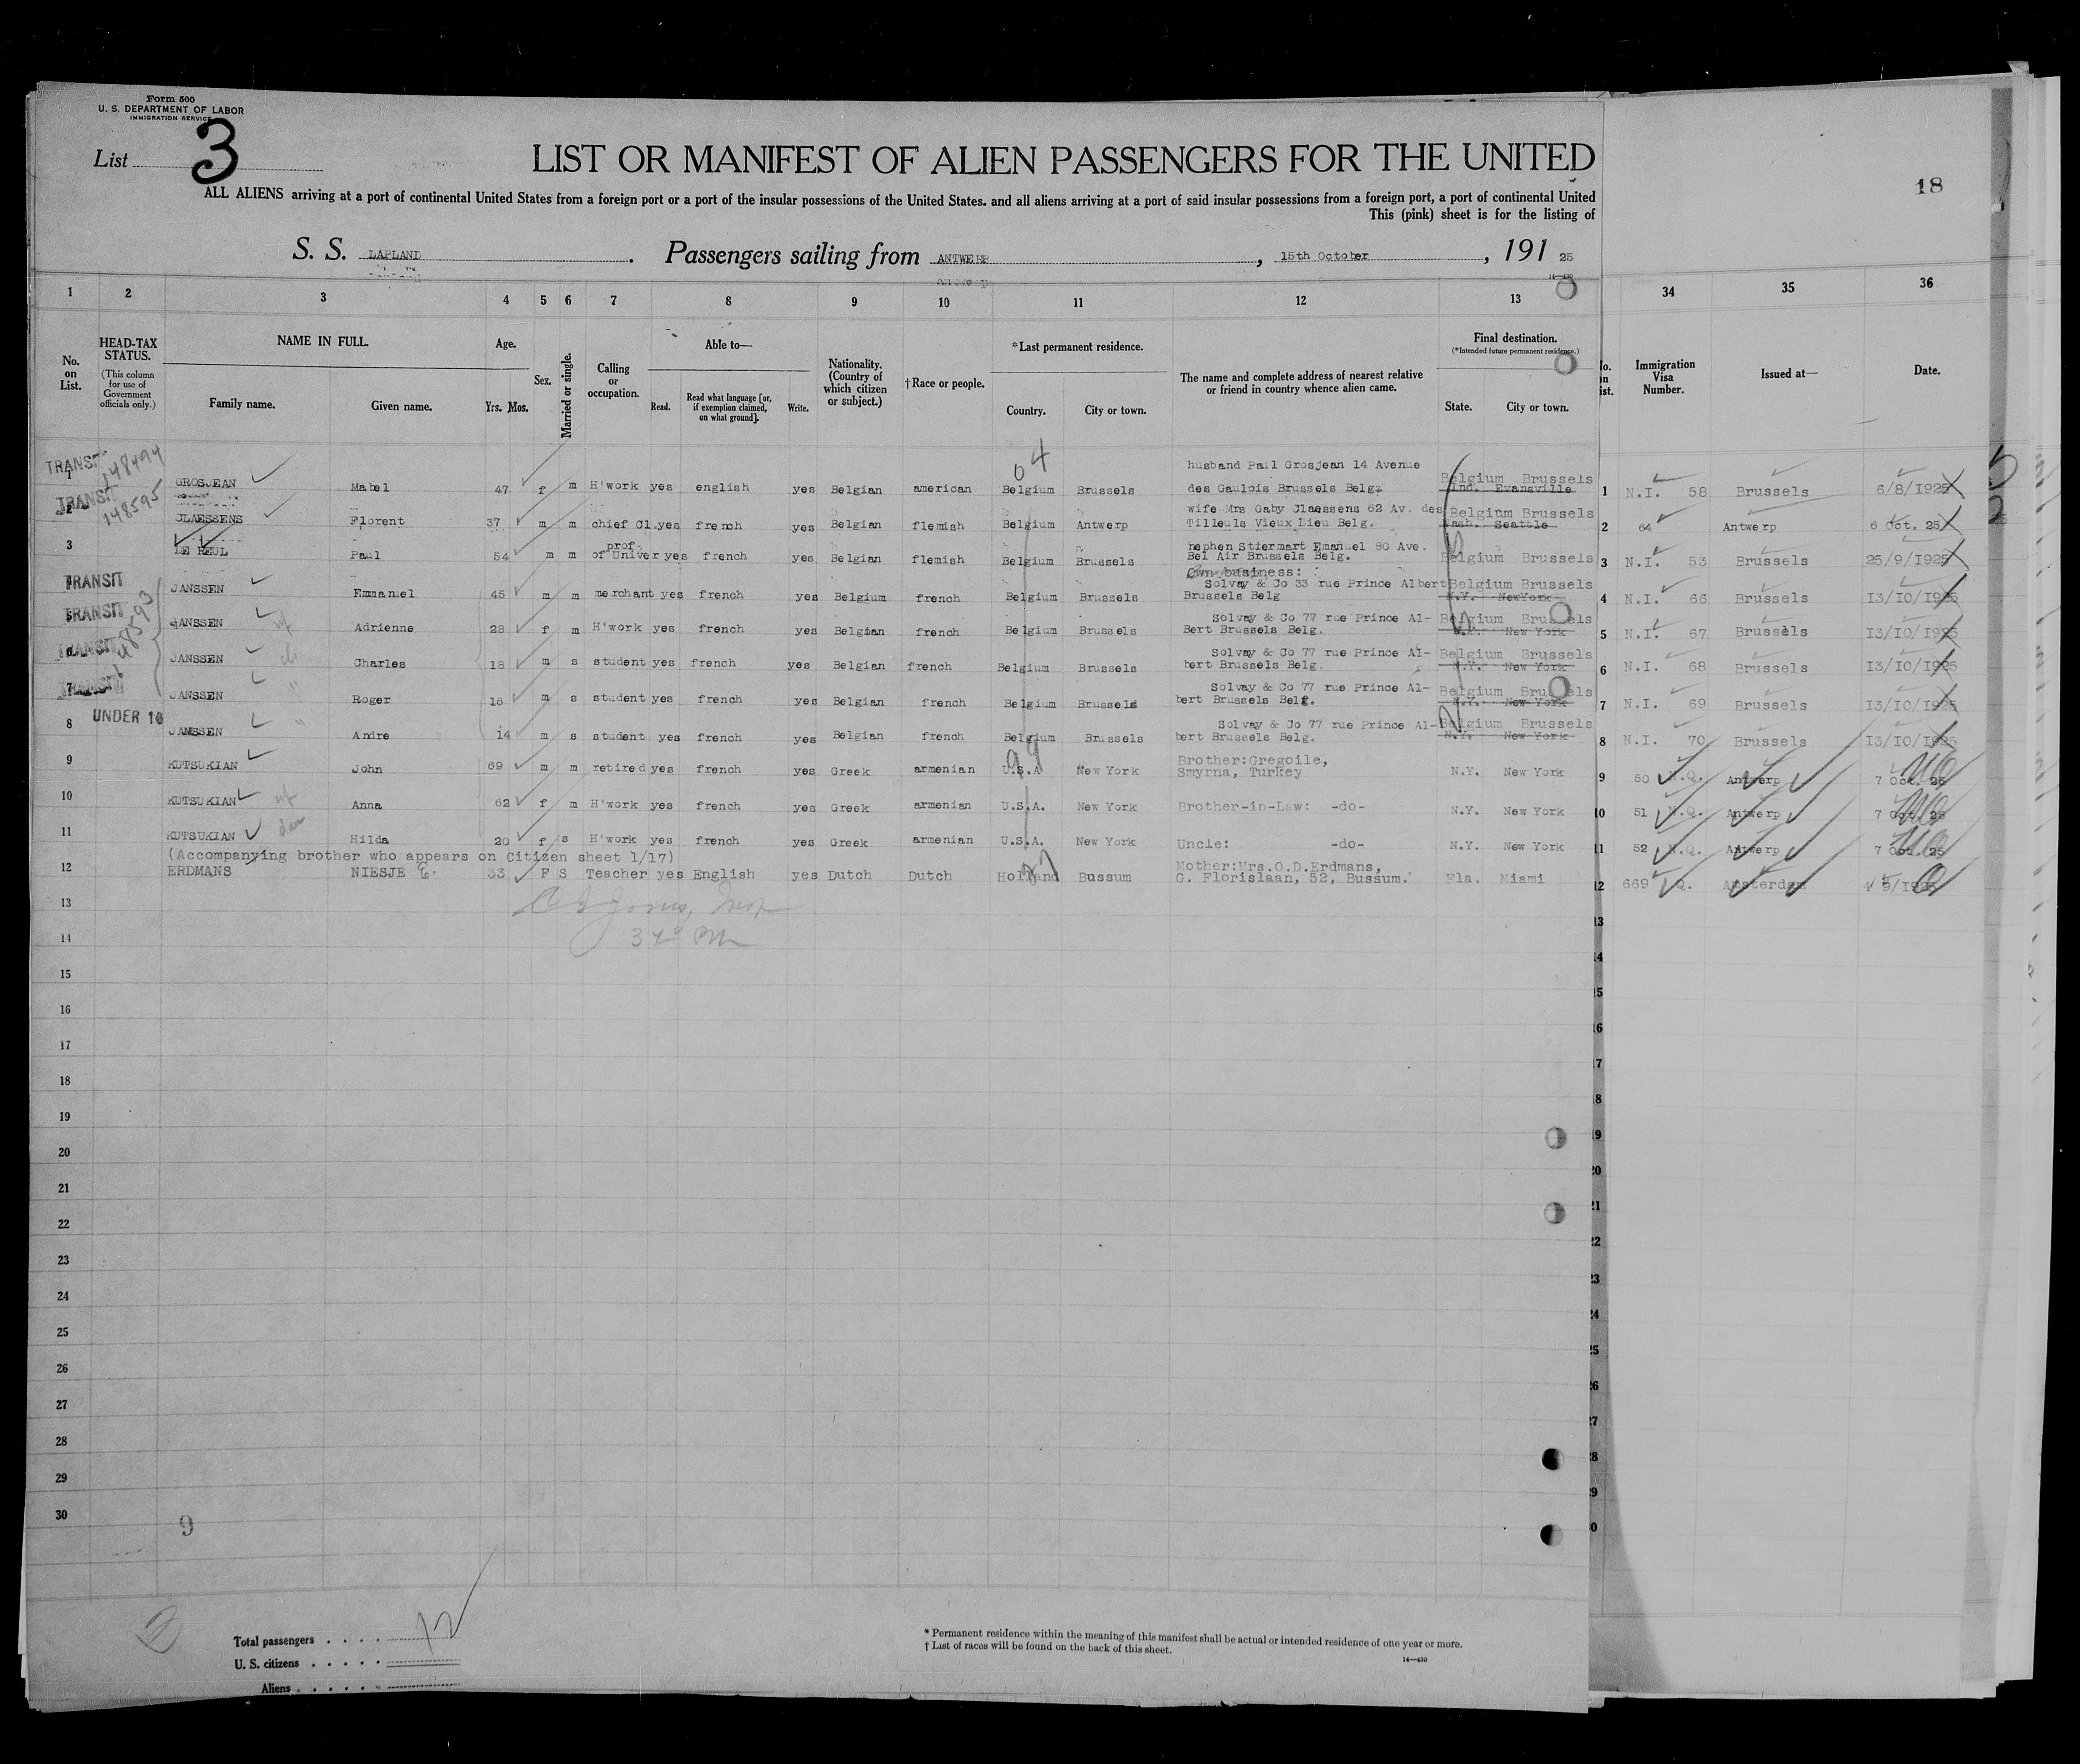 Form 500
U. S. DEPARTMENT OF LABOR
IMMIGRATION SERVICE
List 3
LIST OR MANIFEST OF ALIEN PASSENGERS FOR THE UNITED
18
ALL ALIENS arriving at a port of continental United States from a foreign port or a port of the insular possessions of the United States. and all aliens arriving at a port of said insular possessions from a foreign port, a port of continental United
This (pink) sheet is for the listing of
S. S. LAPLAND. Passengers sailing from ANTWERP, 15th October, 191 25
14—430
1 2 3 4 5 6 7 8 9 10 11 12 13 34 35 36
No. on List.
HEAD-TAX STATUS.
(This column for use of Government officials only.)
NAME IN FULL.
Family name. Given name.
Age.
Yrs. Mos.
Sex.
Married or single.
Calling or occupation.
Able to—
Read. Read what language [or, if exemption claimed, on what ground]. Write.
Nationality. (Country of which citizen or subject.)
† Race or people.
*Last permanent residence.
Country. City or town.
The name and complete address of nearest relative or friend in country whence alien came.
Final destination.
(*Intended future permanent residence.)
State. City or town.
Immigration Visa Number.
Issued at—
Date.
04
TRANSIT 148494
husband Paul Grosjean 14 Avenue Belgium Brussels
1 GROSJEAN Mabel 47 f m H'work yes english yes Belgian american Belgium Brussels des Gaulois Brussels Belg. Ind. Evansville 1 N.I. 58 Brussels 6/8/1925
TRANSIT 148595
wife Mrs Gaby Claessens 62 Av. des Belgium Brussels
2 CLAESSENS Florent 37 m m chief Cl. yes french yes Belgian flemish Belgium Antwerp Tilleuls Vieux Dieu Belg. Wash. Seattle 2 64 Antwerp 6 Oct. 25
prof. nephen Stiermart Emanuel 80 Ave.
3 LE REUL Paul 54 m m of Univer yes french yes Belgian flemish Belgium Brussels Bel Air Brussels Belg. Belgium Brussels 3 N.I. 53 Brussels 25/9/1925
Own business:
TRANSIT
Solvay & Co 33 rue Prince Albert Belgium Brussels
JANSSEN Emmanuel 45 m m merchant yes french yes Belgium french Belgium Brussels Brussels Belg N.Y. NewYork 4 N.I. 66 Brussels 13/10/1925
TRANSIT 148593
Solvay & Co 77 rue Prince Al- Belgium Brussels
JANSSEN wf Adrienne 28 f m H'work yes french yes Belgian french Belgium Brussels Bert Brussels Belg. N.Y. New York 5 N.I. 67 Brussels 13/10/1925
TRANSIT
Solvay & Co 77 rue Prince Al- Belgium Brussels
JANSSEN ch Charles 18 m s student yes french yes Belgian french Belgium Brussels bert Brussels Belg. N.Y. New York 6 N.I. 68 Brussels 13/10/1925
TRANSIT
Solvay & Co 77 rue Prince Al- Belgium Brussels
7 JANSSEN " Roger 16 m s student yes french yes Belgian french Belgium Brussels bert Brussels Belg. N.Y. New York 7 N.I. 69 Brussels 13/10/1925
UNDER 16
Solvay & Co 77 rue Prince Al- Belgium Brussels
8 JANSSEN " Andre 14 m s student yes french yes Belgian french Belgium Brussels bert Brussels Belg. N.Y. New York 8 N.I. 70 Brussels 13/10/1925
99
Brother:Gregoile,
9 KUTSUKIAN John 69 m m retired yes french yes Greek armenian U.S.A New York Smyrna, Turkey N.Y. New York 9 50 N.Q. Antwerp 7 Oct. 25
10 KUTSUKIAN wf Anna 62 f m H'work yes french yes Greek armenian U.S.A. New York Brother-in-Law: -do- N.Y. New York 10 51 N.Q. Antwerp 7 Oct. 25
11 KUTSUKIAN dau Hilda 20 f s H'work yes french yes Greek armenian U.S.A. New York Uncle: -do- N.Y. New York 11 52 N.Q. Antwerp 7 Oct. 25
(Accompanying brother who appears on Citizen sheet 1/17)
Mother:Mrs.O.D.Erdmans,
12 ERDMANS NIESJE E. 33 F S Teacher yes English yes Dutch Dutch Holland Bussum G. Florislaan, 52, Bussum. Fla. Miami 12 669 Q. Amsterdam
13 13
14 14
15 15
16 16
17 17
18 18
19 19
20 20
21 21
22 22
23 23
24 24
25 25
26 26
27 27
28 28
29 29
30 30
9
2
Total passengers . . . . 12
U. S. citizens . . . . .
Aliens . . . . . .
* Permanent residence within the meaning of this manifest shall be actual or intended residence of one year or more.
† List of races will be found on the back of this sheet.
14—430